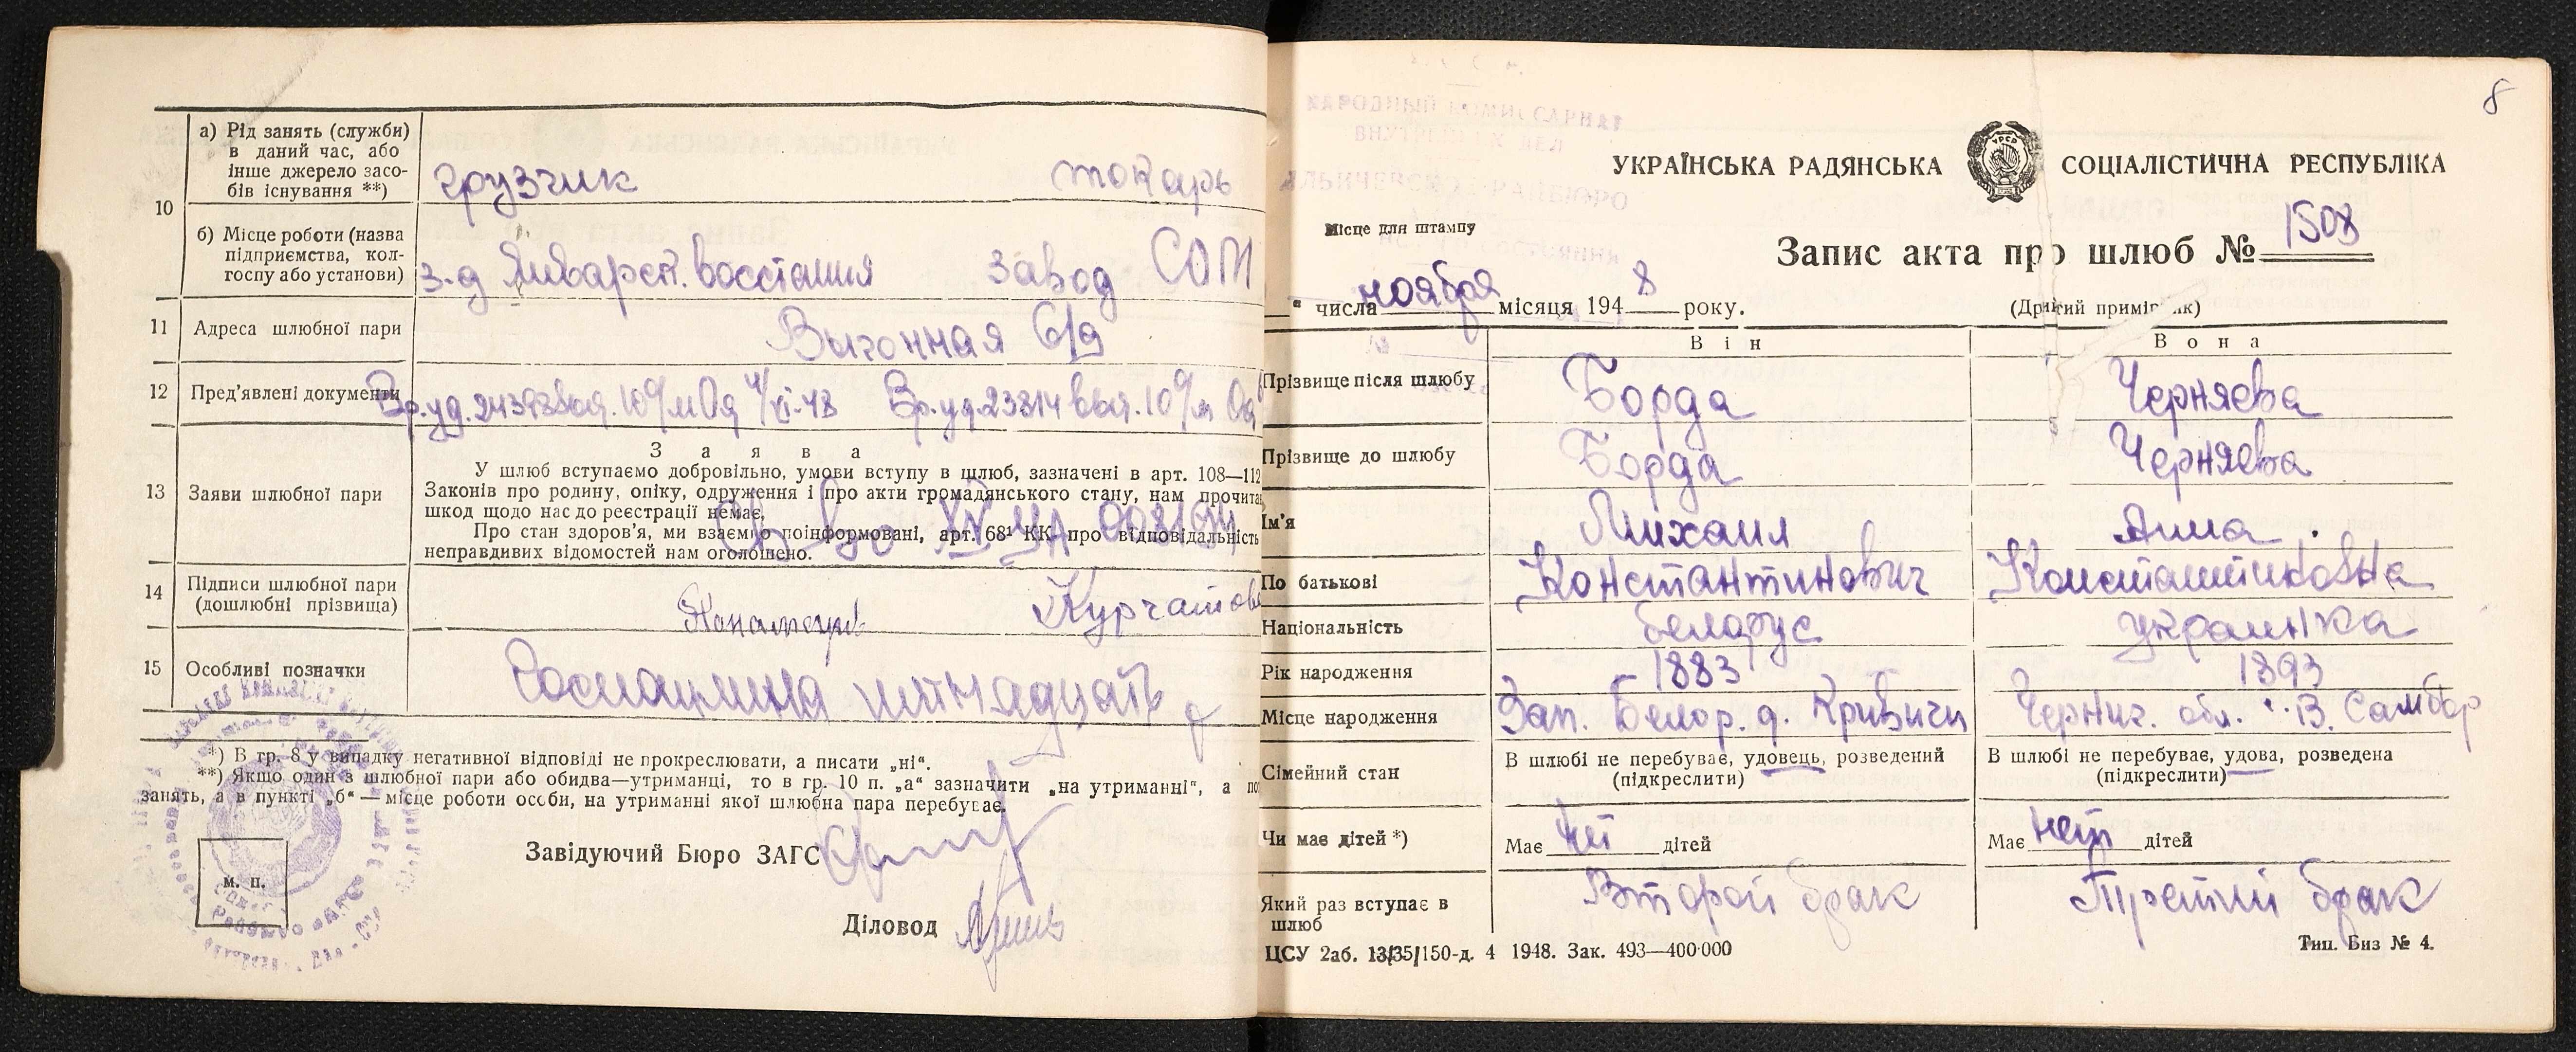 10
а) Рід занять (служби)
в даний час, або
інше джерело засо-
бів існування **)
грузчик
токарь
б) Місце роботи (назва
підприємства, кол-
госпу або установи)
з-д Январск. восстания
завод СОМ
11
Адреса шлюбної пари
Выгонная
12
Пред'явлені документи
13
Заяви шлюбної пари
З а я в а
У шлюб вступаємо добровільно, умови вступу в шлюб, зазначені в арт. 108—112
Законів про родину, опіку, одруження і про акти громадянського стану, нам прочита
шкод щодо нас до реєстрації немає.
Про стан здоров'я, ми взаємно поінформовані, арт. 68¹ КК про відповідальність
неправдивих відомостей нам оголошено.
14
Підписи шлюбної пари
(дошлюбні прізвища)
15
Особливі позначки
*) В гр. 8 у випадку негативної відповіді не прокреслювати, а писати „ні“.
**) Якщо один з шлюбної пари або обидва—утриманці, то в гр. 10 п. „а“ зазначити „на утриманні“, а по
занять, а в пункті „б“ — місце роботи особи, на утриманні якої шлюбна пара перебуває.
Завідуючий Бюро ЗАГС
м. п.
Діловод
8
УКРАЇНСЬКА РАДЯНСЬКА СОЦІАЛІСТИЧНА РЕСПУБЛІКА
УРСР
Місце для штампу
Запис акта про шлюб № 1508
“ числа ноября місяця 1948 року.
(Другий примірник)
Він
Вона
Прізвище після шлюбу
Борда
Черняева
Прізвище до шлюбу
Борда
Черняева
Ім'я
Михаил
Анна
По батькові
Константинович
Константиновна
Національність
беларус
украинка
Рік народження
1883
1893
Місце народження
Зап. Белор. д. Кривичи
Черниг. обл. В. Самбор
Сімейний стан
В шлюбі не перебуває, удовець, розведений
(підкреслити)
В шлюбі не перебуває, удова, розведена
(підкреслити)
Чи має дітей *)
Має нет дітей
Має нет дітей
Який раз вступає в
шлюб
Второй брак
Третий брак
ЦСУ 2аб. 13/35/150-д. 4 1948. Зак. 493—400·000
Тип. Биз № 4.